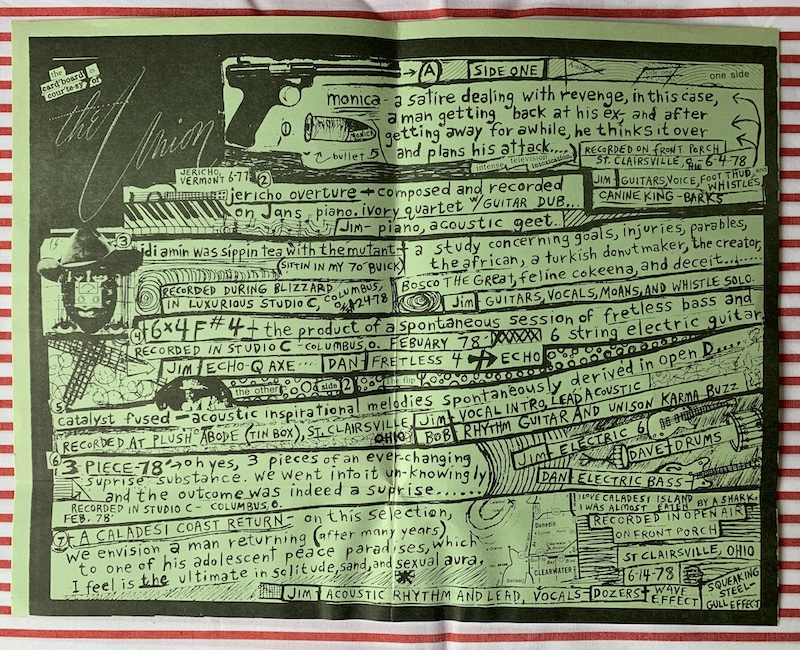 the
card'board is
cour'te·sy of
the Union
A
SIDE ONE
side one
one side
monica - a satire dealing with revenge, in this case,
a man getting back at his ex, and after
getting away for awhile, he thinks it over
and plans his attack....
MONICA
bullet
intense television intoxication
RECORDED ON FRONT PORCH
ST. CLAIRSVILLE, OHIO 6-4-78
JIM GUITARS, VOICE, FOOT THUD, and WHISTLES,
CANINE KING - BARKS
JERICHO,
VERMONT 6-77
2
jericho overture - composed and recorded
on Jans piano. ivory quartet w/ GUITAR DUB...
JIM - piano, acoustic geet.
3
idi amin was sippin tea with the mutant - a study concerning goals, injuries, parables,
SITTIN IN MY 70 BUICK
the african, a turkish donut maker, the creator,
BOSCO THE GREAT, feline cokeena, and deceit......
RECORDED DURING BLIZZARD
IN LUXURIOUS STUDIO C, COLUMBUS,
JIM GUITARS, VOCALS, MOANS, AND WHISTLE SOLO.
4
6x4F#4 - the product of a spontaneous session of fretless bass and
6 string electric guitar
RECORDED IN STUDIO C - COLUMBUS, O. FEBUARY 78'
JIM ECHO-Q AXE... DAN FRETLESS 4 ECHO
the other side 2 the flip
5
catalyst fused - acoustic inspirational melodies spontaneously derived in open D....
RECORDED AT PLUSH ABODE (TIN BOX), ST. CLAIRSVILLE, OHIO
JIM VOCAL INTRO, LEAD ACOUSTIC
BOB RHYTHM GUITAR AND UNISON KARMA BUZZ
6
3 PIECE-78' oh yes, 3 pieces of an ever-changing
suprise substance. we went into it un-knowingly
and the outcome was indeed a suprise......
JIM ELECTRIC 6
DAVE DRUMS
DAN ELECTRIC BASS
RECORDED IN STUDIO C - COLUMBUS, O.
FEB. 78'
7
A CALADESI COAST RETURN on this selection,
we envision a man returning (after many years)
to one of his adolescent peace paradises, which
I feel is the ultimate in solitude, sand, and sexual aura.
Dunedin
CLEARWATER
I LOVE CALADESI ISLAND
I WAS ALMOST EATEN BY A SHARK.
RECORDED IN OPEN AIR
ON FRONT PORCH
ST CLAIRSVILLE, OHIO
6-14-78
JIM ACOUSTIC RHYTHM AND LEAD, VOCALS - DOZERS WAVE EFFECT
SQUEAKING
STEEL-
GULL EFFECT